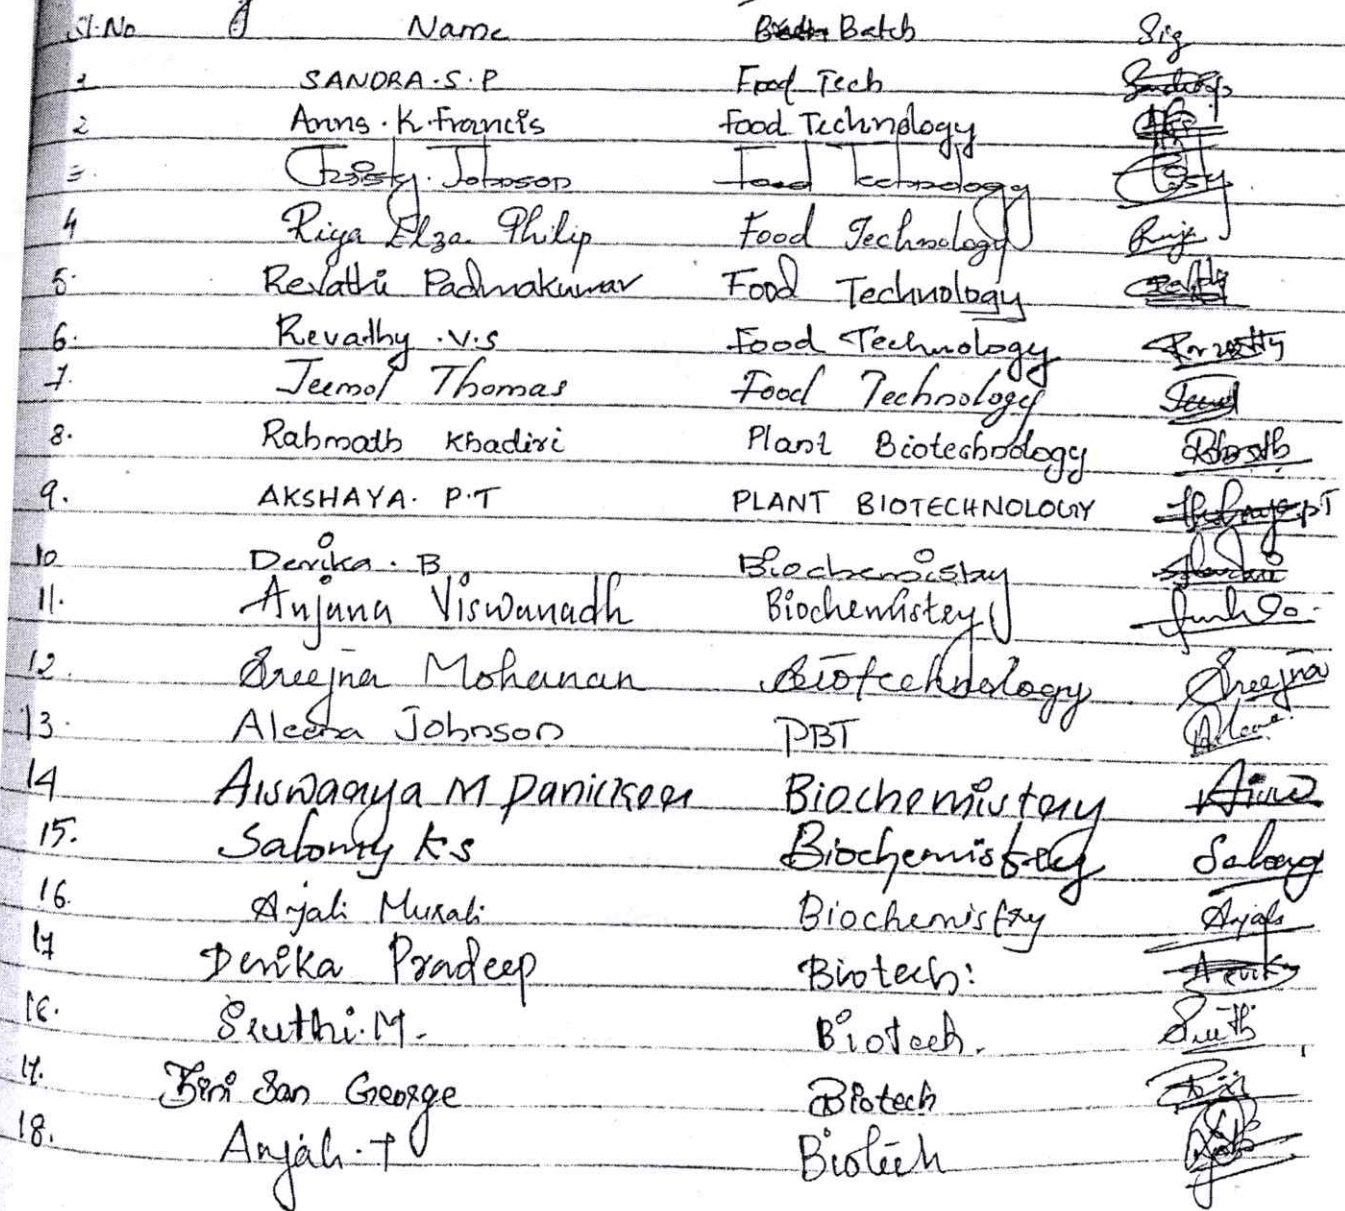 Sl.No Name Batch Sig
1 SANDRA.S.P Food Tech
2 Anns.K.Francis Food Technology
3. Christy.Johnson Food Technology
4 Riya Elza Philip Food Technology
5. Revathi Padmakumar Food Technology
6. Revathy.V.S Food Technology
7. Jeemol Thomas Food Technology
8. Rahmath Khadiri Plant Biotechnology
9. AKSHAYA. P.T PLANT BIOTECHNOLOGY
10 Devika.B Biochemistry
11. Anjana Viswanadh Biochemistry
12. Sreejna Mohanan Biotechnology Sreejna
13. Aleena Johnson PBT
14 Aiswarya M Panicker Biochemistry
15. Salomy K S Biochemistry
16. Anjali Murali Biochemistry Anjali
17 Devika Pradeep Biotech:
16. Sruthi.M. Biotech.
17. Jini San George Biotech
18. Anjali.T Biotech